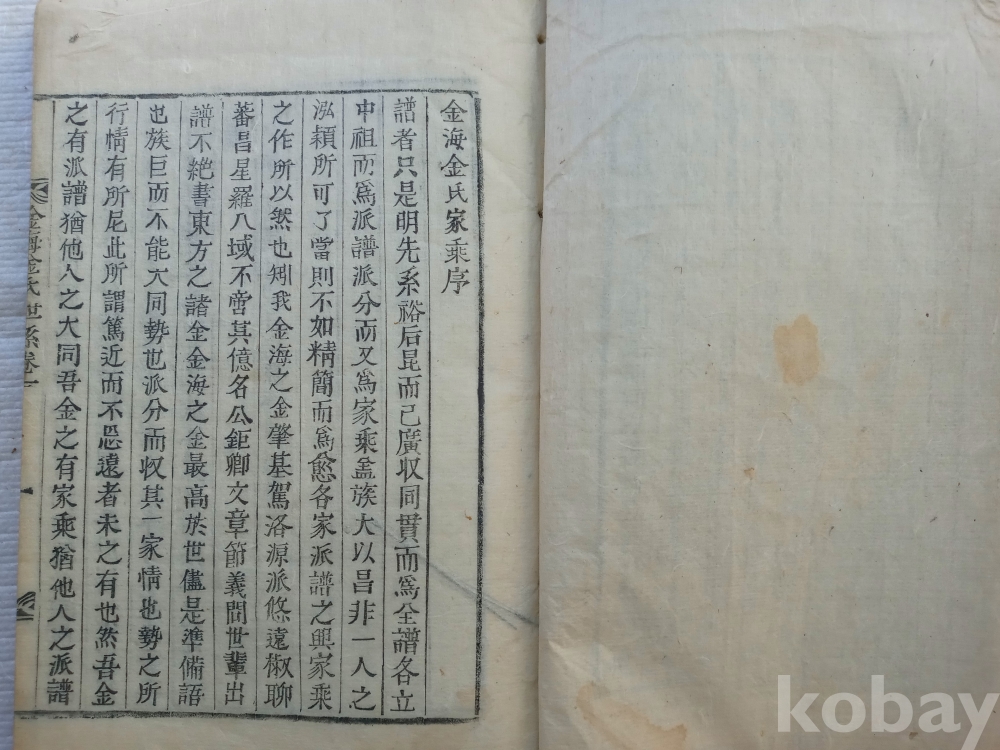 金海金氏家乘序
譜者只是明先系裕后昆而已廣収同貫而爲全譜各立
中祖而爲派譜派分而又爲家乘盖族大以昌非一人之
泓穎所可了當則不如精簡而爲愈各家派譜之興家乘
之作所以然也矧我金海之金肇基駕洛源派悠遠椒聊
蕃昌星羅八域不啻其億名公鉅卿文章節義間世輩出
譜不絶書東方之諸金金海之金最高於世儘是準備語
也族巨而不能大同勢也派分而収其一家情也勢之所
行情有所尼此所謂篤近而不忘遠者未之有也然吾金
之有派譜猶他人之大同吾金之有家乘猶他人之派譜
金海金氏世系卷一
kobay